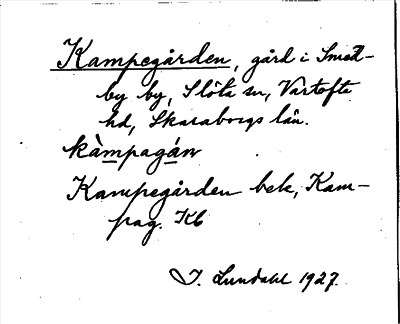 Kampegården, gård i Smed-
by by, Slöta sn, Vartofta
hd, Skaraborgs län.
kàmpagán
Kampegården bek, Kam-
pag. Kb
I. Lundahl 1927.